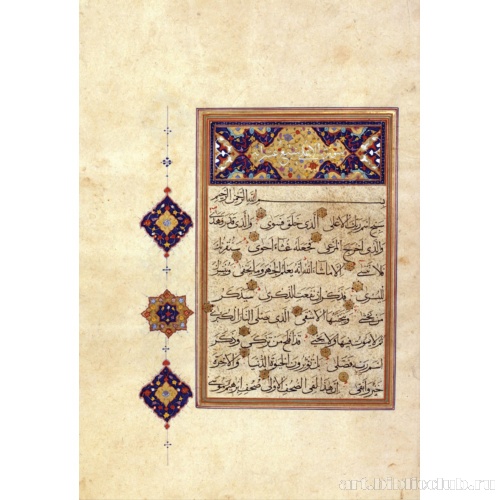 بسم الله الرحمن الرحيم
سبح اسم ربك الاعلى الذي خلق فسوى والذي قدر فهدى
والذي اخرج المرعى فجعله غثاء احوى سنقرئك
فلا تنسى الا ما شاء الله انه يعلم الجهر وما يخفى ونيسرك
لليسرى فذكر ان نفعت الذكرى سيذكر
من يخشى ويتجنبها الاشقى الذي يصلى النار الكبرى
ثم لا يموت فيها ولا يحيى قد افلح من تزكى وذكر
اسم ربه فصلى بل تؤثرون الحيوة الدنيا والاخرة
خير وابقى ان هذا لفي الصحف الاولى صحف ابرهيم وموسى
art.biblioclub.ru